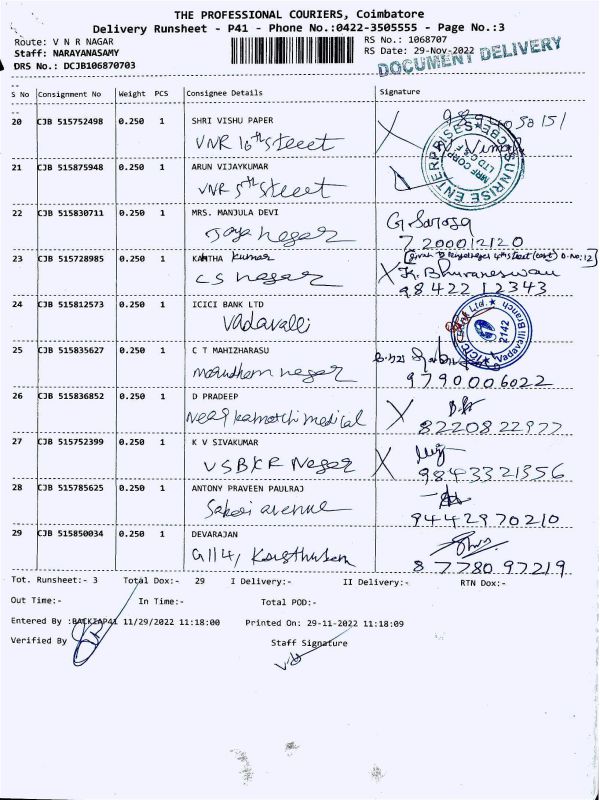 THE PROFESSIONAL COURIERS, Coimbatore
Delivery Runsheet - P41 - Phone No.:0422-3505555 - Page No.:3
Route: V N R NAGAR
RS No.: 1068707
Staff: NARAYANASAMY
RS Date: 29-Nov-2022
DRS No.: DCJB106870703
DOCUMENT DELIVERY
S No Consignment No Weight PCS Consignee Details Signature
20 CJB 515752498 0.250 1 SHRI VISHU PAPER
VNR 16th Street
SUNRISE ENTERPRISES
MRF CORP LTD C&F
CBE
21 CJB 515875948 0.250 1 ARUN VIJAYKUMAR
VNR 5th Street
22 CJB 515830711 0.250 1 MRS. MANJULA DEVI
Jaya nagar
G Saroja
7200012120
23 CJB 515728985 0.250 1 KANTHA Kumar
CS nagar
K. Bhuvaneswari
9842212343
24 CJB 515812573 0.250 1 ICICI BANK LTD
Vadavalli
ICICI Bank Ltd.
2142
Vadavalli Branch
25 CJB 515835627 0.250 1 C T MAHIZHARASU
marudham nagar
9790006022
26 CJB 515836852 0.250 1 D PRADEEP
Near kamatchi medical
8220822977
27 CJB 515752399 0.250 1 K V SIVAKUMAR
VSBKR Nagar
9843321356
28 CJB 515785625 0.250 1 ANTONY PRAVEEN PAULRAJ
Sakthi avenue
9442970210
29 CJB 515850034 0.250 1 DEVARAJAN
G114, Kousthubam
8778097219
Tot. Runsheet:- 3 Total Dox:- 29 I Delivery:- II Delivery:- RTN Dox:-
Out Time:- In Time:- Total POD:-
Entered By :BACKIAP41 11/29/2022 11:18:00 Printed On: 29-11-2022 11:18:09
Verified By Staff Signature